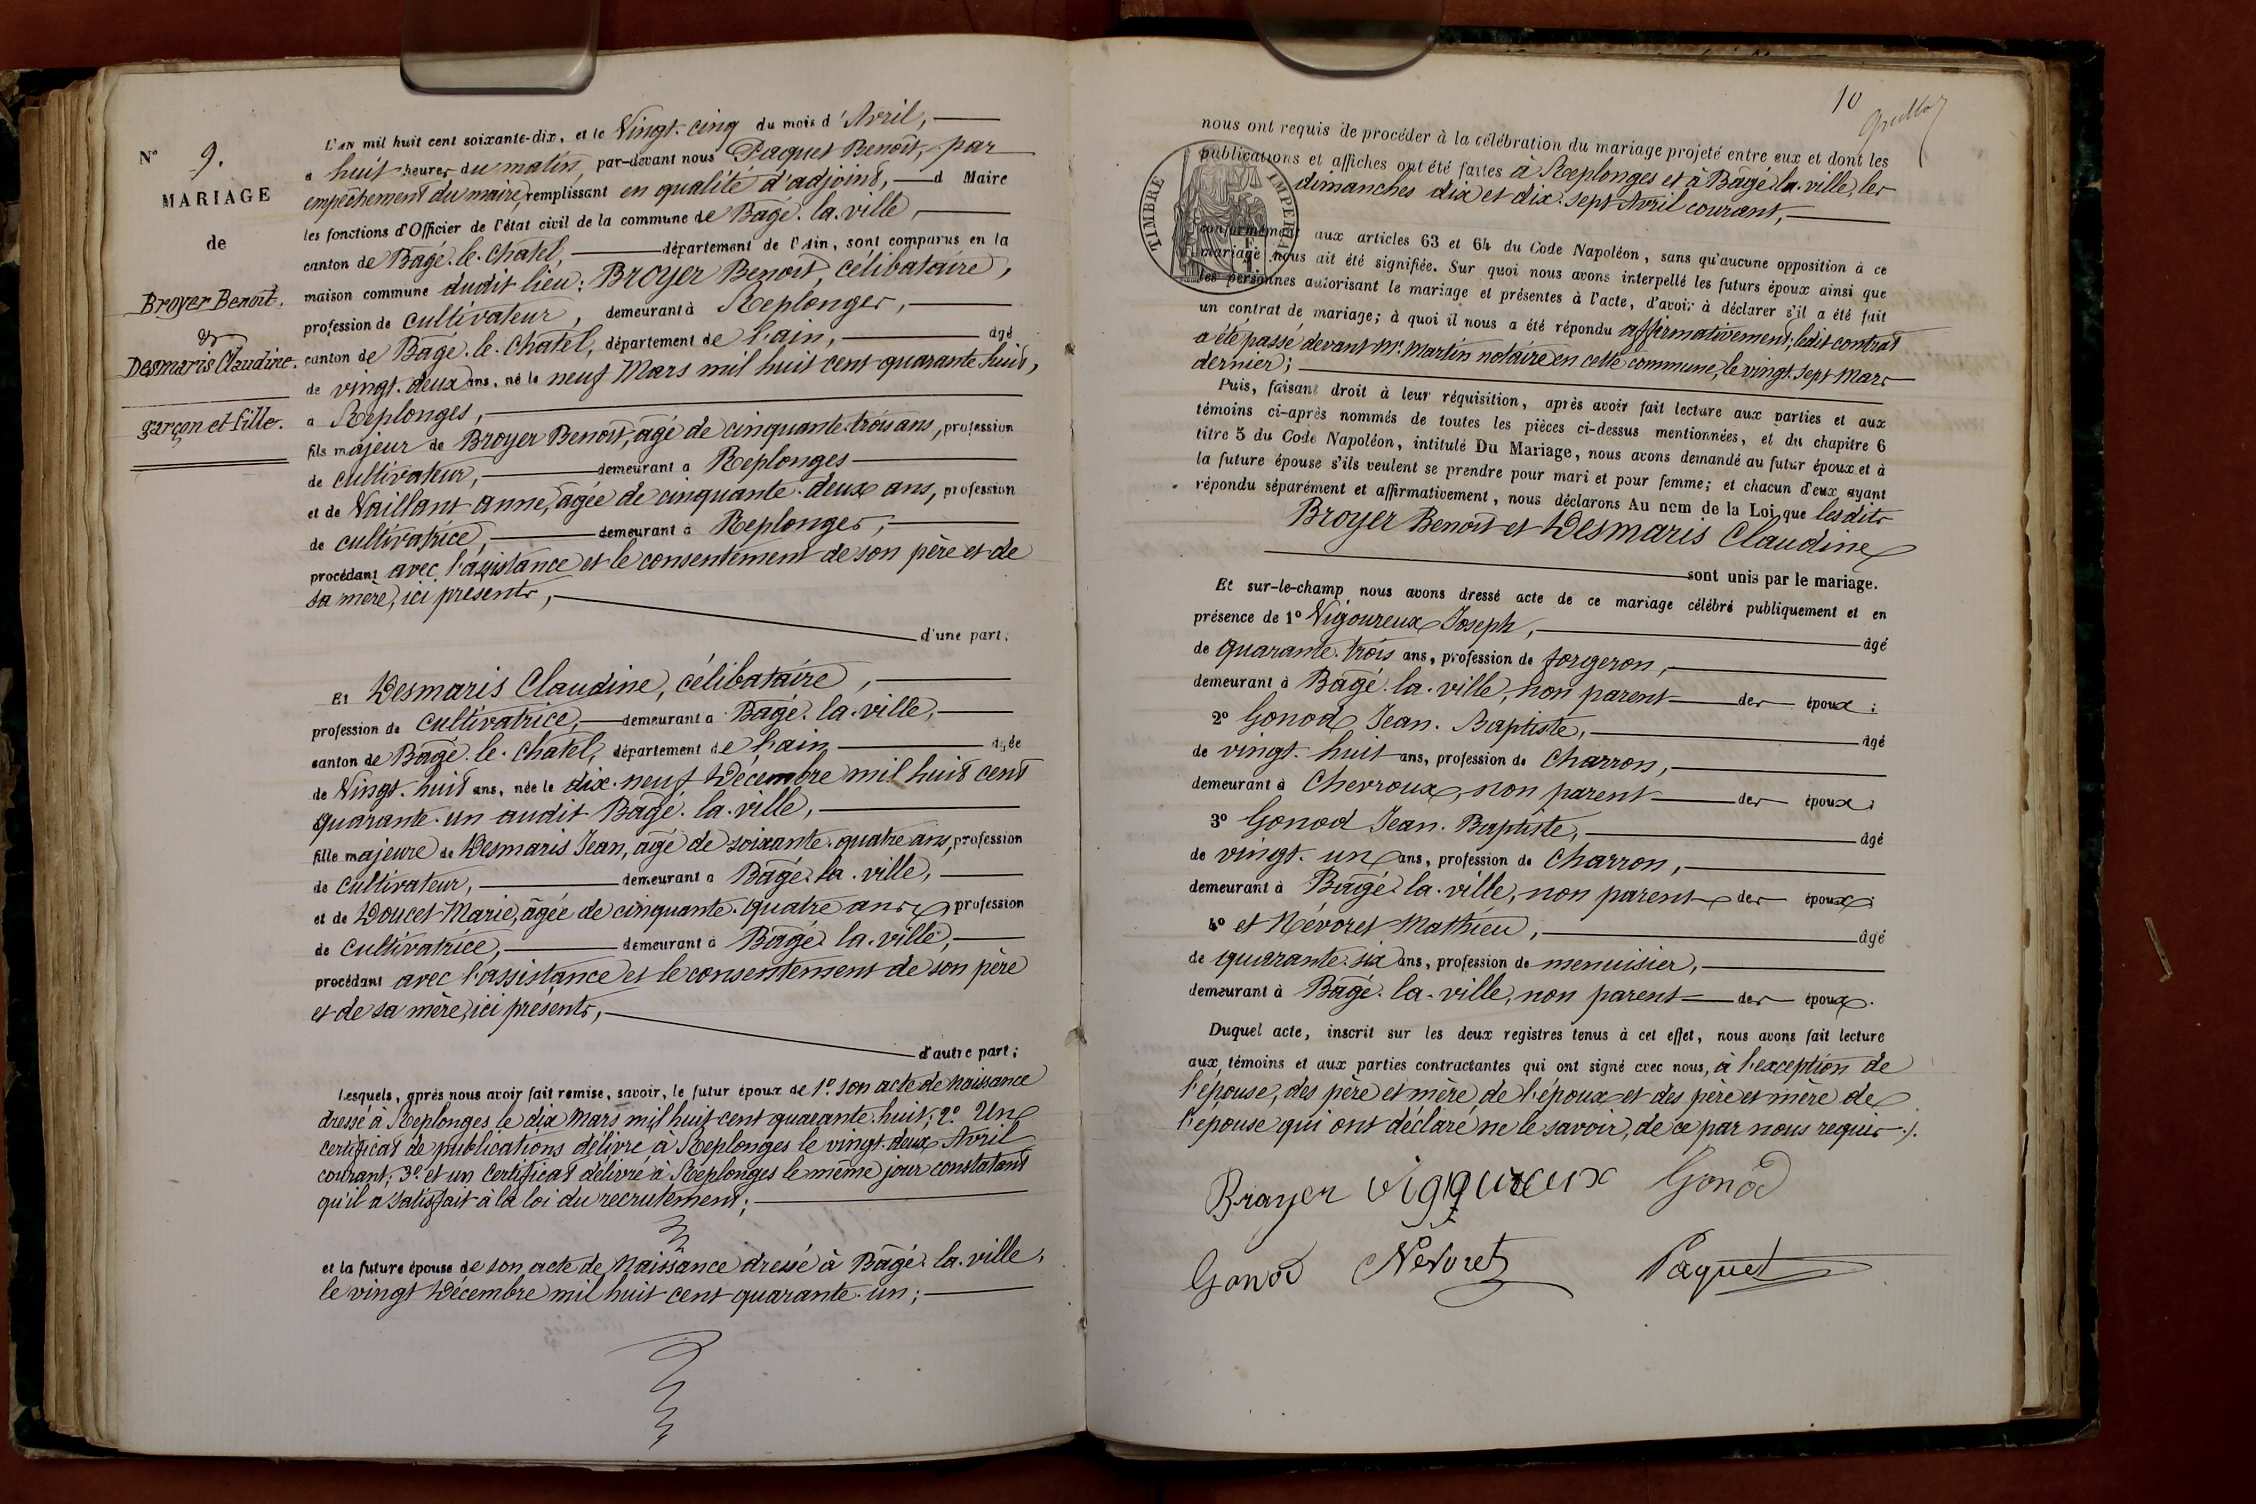 N° 9.
MARIAGE
de
Broyer Benoit.
&
Desmaris Claudine.
garçon et fille.
L'an mil huit cent soixante-dix, et le Vingt-cinq du mois d'Avril,
a huit heures du matin, par-devant nous Paquet Benoit, par
empêchement du maire, remplissant en qualité d'adjoint, d Maire
les fonctions d'Officier de l'état civil de la commune de Bâgé-la-ville,
canton de Bâgé-le-Chatel, département de l'Ain, sont comparus en la
maison commune dudit lieu: Broyer Benoit, célibataire,
profession de cultivateur, demeurant à Replonges,
canton de Bâgé-le-Chatel, département de l'ain, âgé
de vingt-deux ans, né le neuf Mars mil huit cent quarante-huit,
a Replonges,
fils majeur de Broyer Benoit, âgé de cinquante-trois ans, profession
de cultivateur, demeurant a Replonges
et de Vaillant anne, âgée de cinquante-deux ans, profession
de cultivatrice, demeurant à Replonges,
procédant avec l'assistance et le consentement de son père et de
sa mère, ici présents,
d'une part;
Et Desmaris Claudine, célibataire,
profession de cultivatrice, demeurant a Bâgé-la-ville,
canton de Bâgé-le-Chatel, département de l'ain, âgée
de Vingt-huit ans, née le dix-neuf Décembre mil huit cent
quarante-un audit Bâgé-la-ville,
fille majeure de Desmaris Jean, âgé de soixante-quatre ans, profession
de cultivateur, demeurant a Bâgé-la-ville,
et de Doucet Marie, âgée de cinquante-quatre ans, profession
de cultivatrice, demeurant à Bâgé-la-ville,
procédant avec l'assistance et le consentement de son père
et de sa mère, ici présents,
d'autre part;
Lesquels, après nous avoir fait remise, savoir, le futur époux de 1° son acte de naissance
dressé à Replonges le dix Mars mil huit cent quarante-huit; 2° Un
certificat de publications délivré à Replonges le vingt-deux Avril
courant; 3° et un certificat délivré à Replonges le même jour constatant
qu'il a satisfait à la loi du recrutement;
et la future épouse de son acte de naissance dressé à Bâgé-la-ville,
le vingt Décembre mil huit cent quarante-un;
10
nous ont requis de procéder à la célébration du mariage projeté entre eux et dont les
publications et affiches ont été faites à Replonges et à Bâgé-la-ville, les
dimanches dix et dix-sept Avril courant,
TIMBRE IMPERIAL
conformément aux articles 63 et 64 du Code Napoléon, sans qu'aucune opposition à ce
mariage nous ait été signifiée. Sur quoi nous avons interpellé les futurs époux ainsi que
les personnes autorisant le mariage et présentes à l'acte, d'avoir à déclarer s'il a été fait
un contrat de mariage; à quoi il nous a été répondu affirmativement; ledit contrat
a été passé devant Mr. Martin notaire en cette commune, le vingt-sept Mars
dernier;
Puis, faisant droit à leur réquisition, après avoir fait lecture aux parties et aux
témoins ci-après nommés de toutes les pièces ci-dessus mentionnées, et du chapitre 6
titre 5 du Code Napoléon, intitulé Du Mariage, nous avons demandé au futur époux et à
la future épouse s'ils veulent se prendre pour mari et pour femme; et chacun d'eux ayant
répondu séparément et affirmativement, nous déclarons Au nom de la Loi que lesdits
Broyer Benoit et Desmaris Claudine
sont unis par le mariage.
Et sur-le-champ nous avons dressé acte de ce mariage célébré publiquement et en
présence de 1° Vigoureux Joseph, âgé
de quarante-trois ans, profession de forgeron,
demeurant à Bâgé-la-ville, non parent des époux;
2° Gonod Jean-Baptiste, âgé
de vingt-huit ans, profession de Charron,
demeurant à Chevroux, non parent des époux;
3° Gonod Jean-Baptiste, âgé
de vingt-un ans, profession de Charron,
demeurant à Bâgé-la-ville, non parent des époux;
4° et Névoret Mathieu, âgé
de quarante-six ans, profession de menuisier,
demeurant à Bâgé-la-ville, non parent des époux.
Duquel acte, inscrit sur les deux registres tenus à cet effet, nous avons fait lecture
aux témoins et aux parties contractantes qui ont signé avec nous, à l'exception de
l'épouse, des père et mère de l'époux et des père et mère de
l'épouse qui ont déclaré ne le savoir, de ce par nous requis./.
Broyer Vigoureux Gonod
Gonod Névoret Paquet